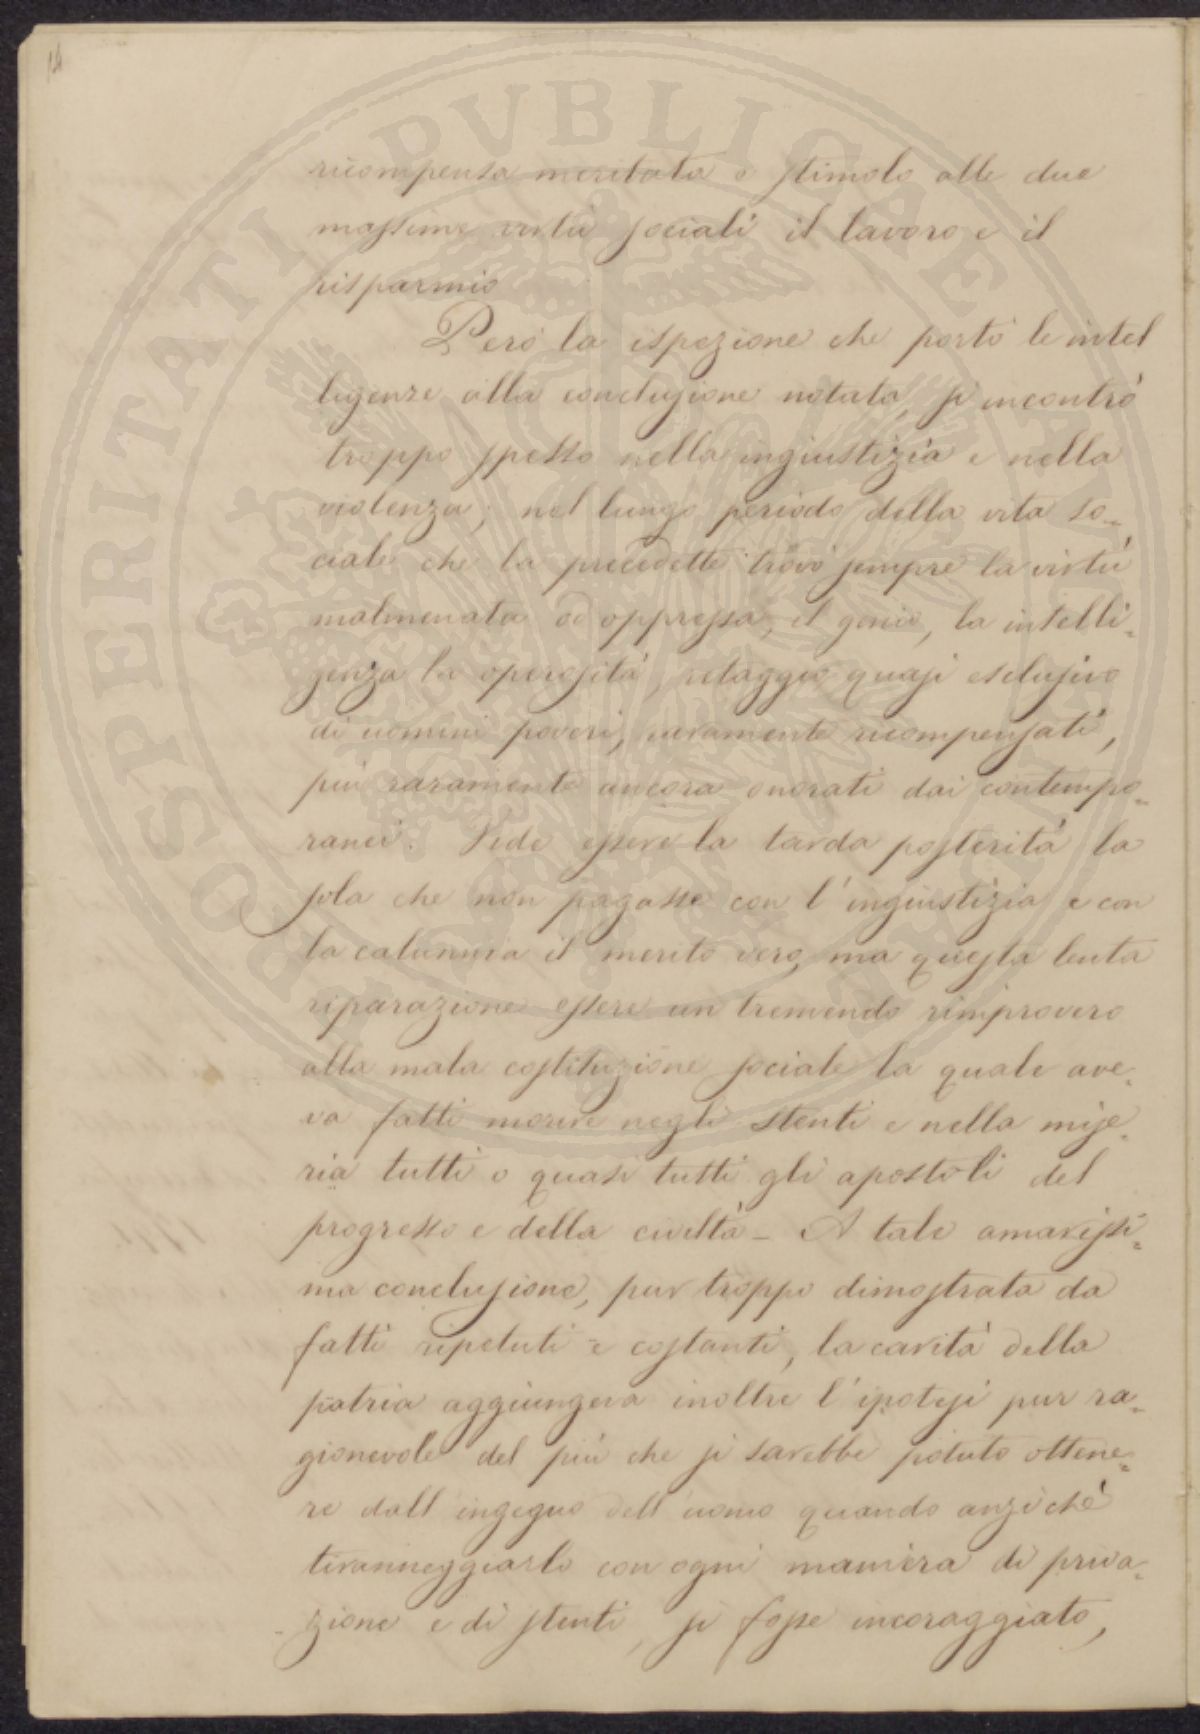 14
ricompensa meritata o stimolo alle due
massime virtù sociali il lavoro e il
risparmio
Però la ispezione che portò le intel
ligenze alla conclusione notata, si incontrò
troppo spesso nella ingiustizia e nella
violenza; nel lungo periodo della vita so=
ciale che la precedette trovò sempre la virtù
malmenata od oppressa, il genio, la intelli=
genza la operosità, retaggio quasi esclusivo
di uomini poveri, raramente ricompensati,
più raramente ancora onorati dai contempo=
ranei. Vide essere la tarda posterità la
sola che non pagasse con l'ingiustizia e con
la calunnia il merito vero, ma questa lenta
riparazione essere un tremendo rimprovero
alla mala costituzione sociale la quale ave=
va fatti morire negli stenti e nella mise=
ria tutti o quasi tutti gli apostoli del
progresso e della civiltà - A tale amarissi=
ma conclusione, pur troppo dimostrata da
fatti ripetuti e costanti, la carità della
patria aggiungeva inoltre l'ipotesi pur ra=
gionevole del più che si sarebbe potuto ottene=
re dall'ingegno dell'uomo quando anziché
tiranneggiarlo con ogni maniera di priva=
zione e di stenti, si fosse incoraggiato,
PROSPERITATI PVBLICAE